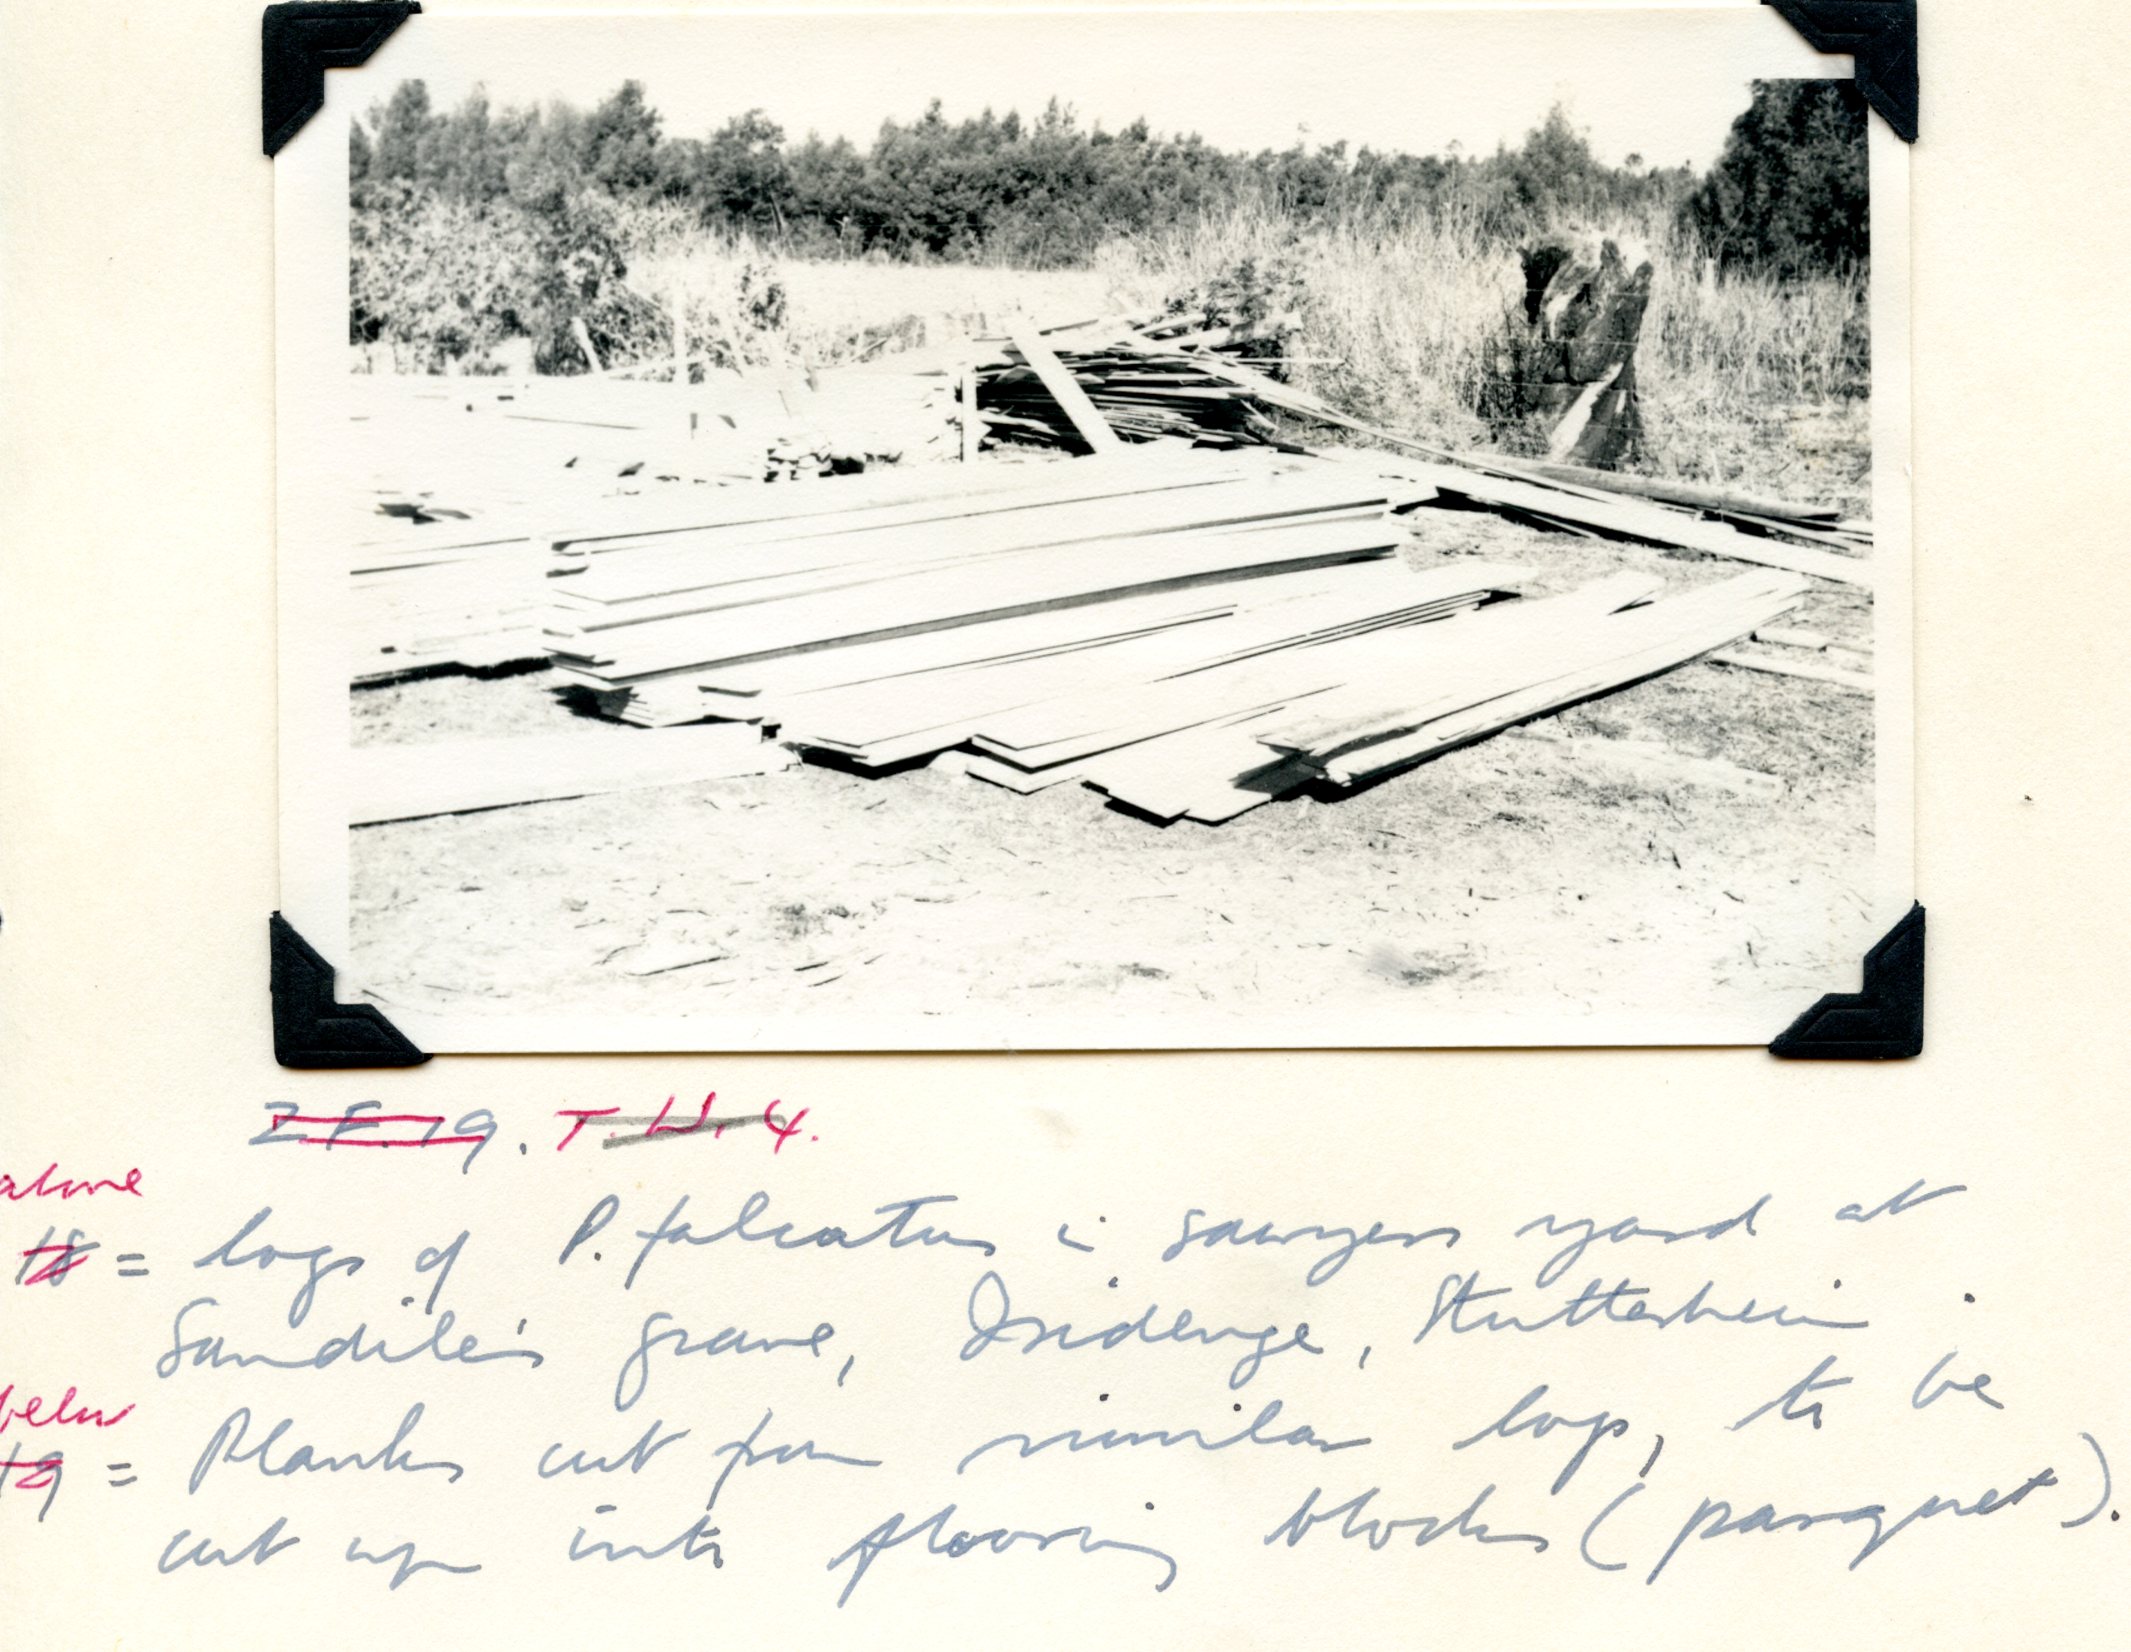 Z F. 19. T. W. 4.
above
18 = logs of P. falcatus in sawyers yard at
Sandile's grave, Isidenge, Stutterheim.
below
19 = Planks cut from similar logs, to be
cut up into flooring blocks (parquet).